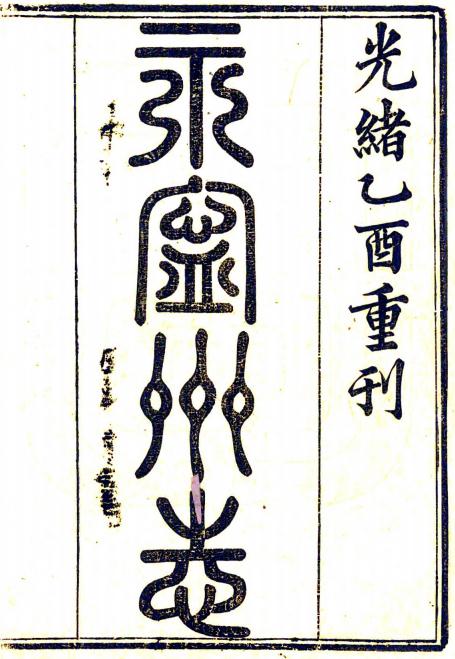 光緒乙酉重刊
永寧州志